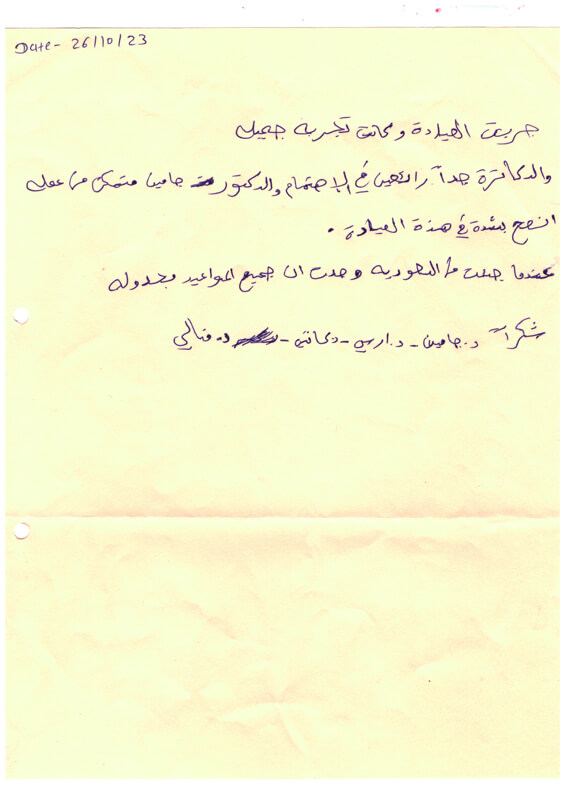 Date- 26/10/23
جربت العيادة وكانت تجربه جميله
والدكاترة جداً رائعين في الإهتمام والدكتور جامين متمكن من عمله
انصح بشدة في هذة العيادة .
عندما جئت من السعودية وجدت ان جميع المواعيد مجدوله
شكراً د.جامين - د.